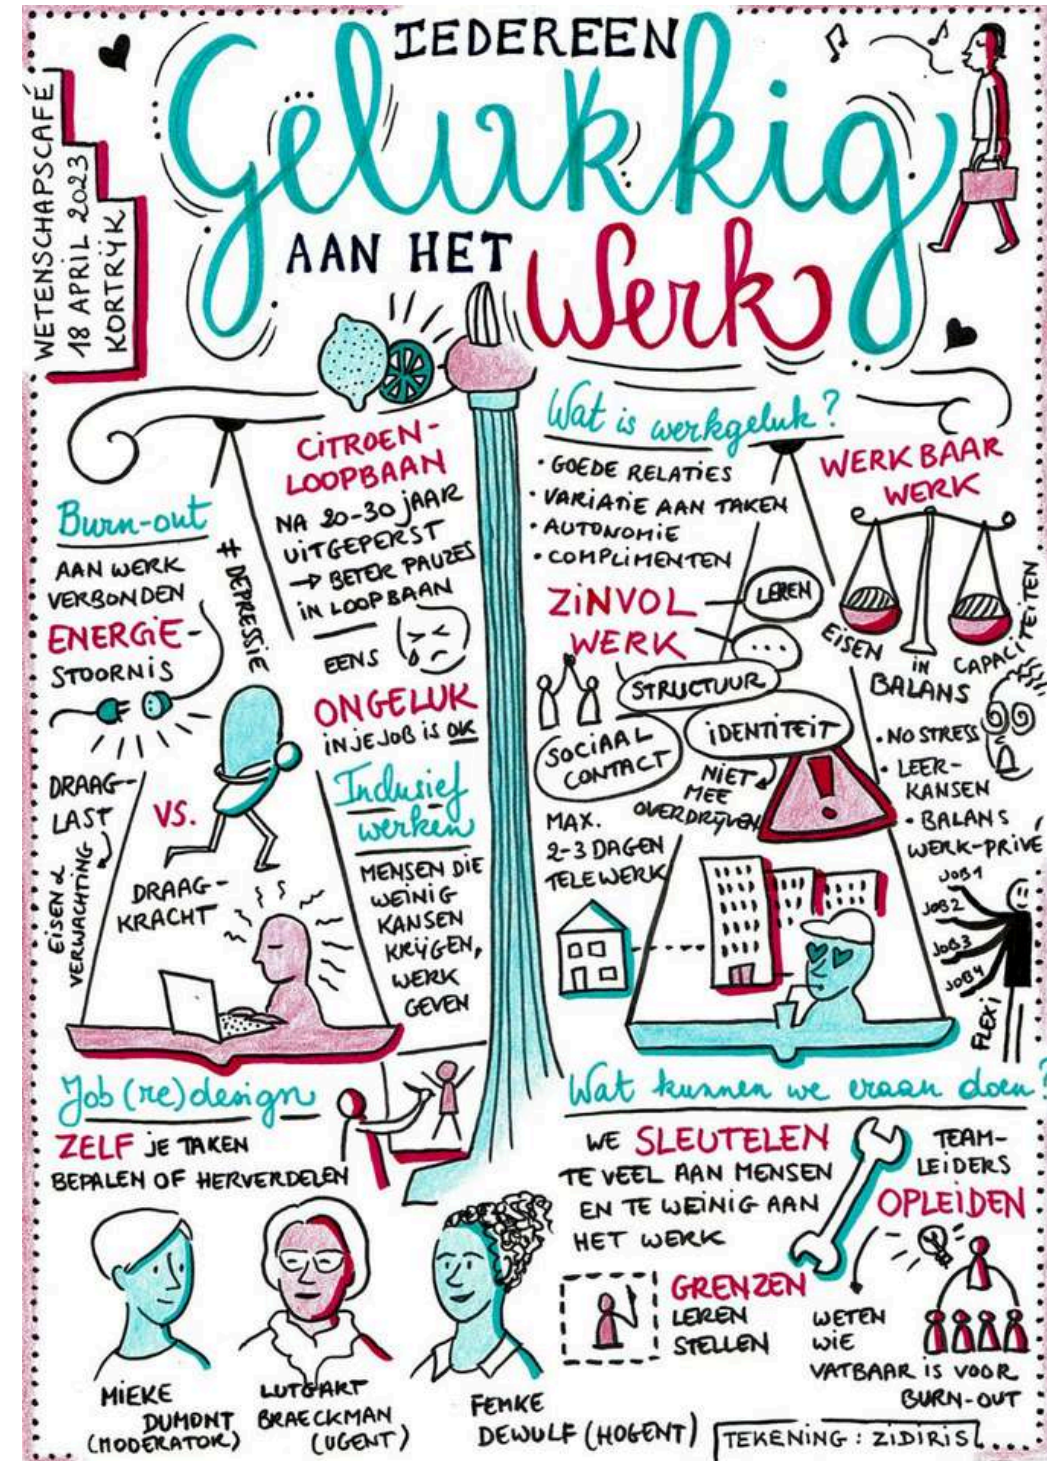 WETENSCHAPSCAFÉ
18 APRIL 2023
KORTRIJK
IEDEREEN
Gelukkig
AAN HET
Werk
Burn-out
AAN WERK
VERBONDEN
ENERGIE-
STOORNIS
# DEPRESSIE
CITROEN-
LOOPBAAN
NA 20-30 JAAR
UITGEPERST
→ BETER PAUZES
IN LOOPBAAN
EENS
ONGELUK
IN JE JOB IS OK
DRAAG-
LAST
VS.
DRAAG-
KRACHT
EISEN &
VERWACHTING
Inclusief
werken
MENSEN DIE
WEINIG
KANSEN
KRIJGEN,
WERK
GEVEN
Wat is werkgeluk?
• GOEDE RELATIES
• VARIATIE AAN TAKEN
• AUTONOMIE
• COMPLIMENTEN
ZINVOL
WERK
LEREN
...
STRUCTUUR
IDENTITEIT
SOCIAAL
CONTACT
NIET
MEE
OVERDRIJVEN
!
MAX.
2-3 DAGEN
TELEWERK
WERKBAAR
WERK
EISEN
IN
BALANS
CAPACITEITEN
• NO STRESS
• LEER-
KANSEN
• BALANS
WERK-PRIVÉ
JOB1
JOB2
JOB3
JOB4
FLEXI
Job (re)design
ZELF JE TAKEN
BEPALEN OF HERVERDELEN
Wat kunnen we eraan doen?
WE SLEUTELEN
TE VEEL AAN MENSEN
EN TE WEINIG AAN
HET WERK
TEAM-
LEIDERS
OPLEIDEN
GRENZEN
LEREN
STELLEN
WETEN
WIE
VATBAAR IS VOOR
BURN-OUT
MIEKE
DUMONT
(MODERATOR)
LUTGART
BRAECKMAN
(UGENT)
FEMKE
DEWULF (HOGENT)
TEKENING: ZIDIRIS